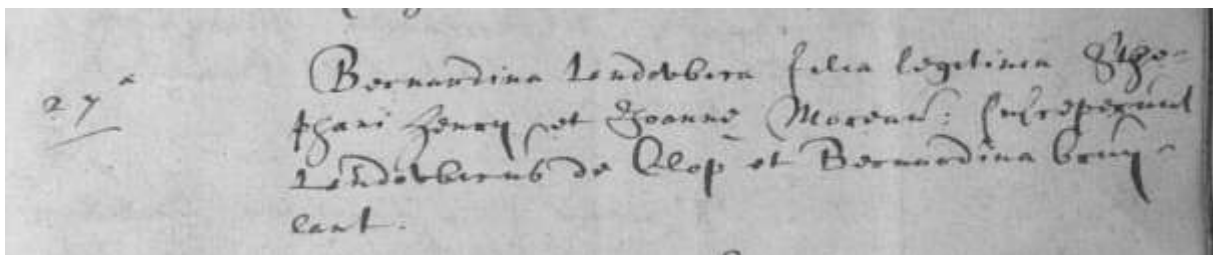 27ª Bernardina Landobera filia legitima Stepha-
phani Henry et Joanne Moreau: susceperunt
Landobertus de Clop et Bernardina bruy-
lant.